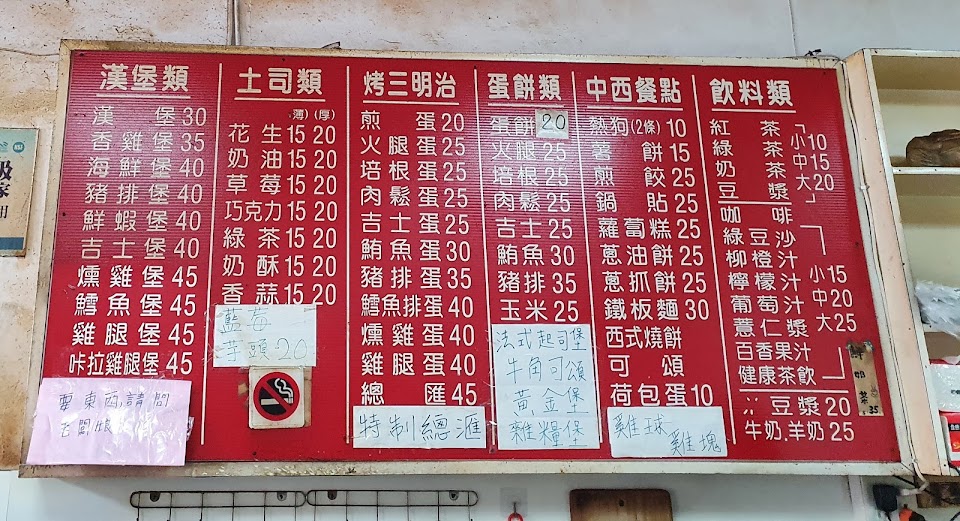 漢堡類
漢堡30
香雞堡35
海鮮堡40
豬排堡40
鮮蝦堡40
吉士堡40
燻雞堡45
鱈魚堡45
雞腿堡45
咔拉雞腿堡45
要東西,請問
土司類
(薄)(厚)
花生15 20
奶油15 20
草莓15 20
巧克力15 20
綠茶15 20
奶酥15 20
香蒜15 20
藍莓
芋頭20
烤三明治
煎蛋20
火腿蛋25
培根蛋25
肉鬆蛋25
吉士蛋25
鮪魚蛋30
豬排蛋35
鱈魚排蛋40
燻雞蛋40
雞腿蛋40
總匯45
特制總滙
蛋餅類
蛋餅20
火腿25
培根25
肉鬆25
吉士25
鮪魚30
豬排35
玉米25
法式起司堡
牛角可頌
黃金堡
雜糧堡
中西餐點
熱狗(2條)10
薯餅15
煎餃25
鍋貼25
蘿蔔糕25
蔥油餅25
蔥抓餅25
鐵板麵30
西式燒餅
可頌
荷包蛋10
雞球
雞塊
飲料類
紅茶
綠茶
奶茶
豆漿
小10
中15
大20
咖啡
綠豆沙
柳橙汁
檸檬汁
葡萄汁
薏仁漿
小15
中20
大25
百香果汁
健康茶飲
豆漿20
牛奶.羊奶25
35